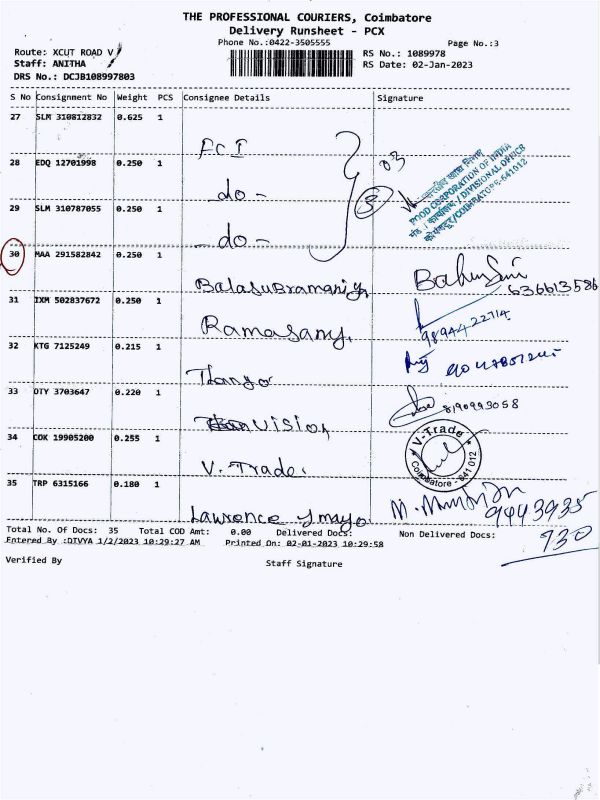 THE PROFESSIONAL COURIERS, Coimbatore
Delivery Runsheet - PCX
Phone No.:0422-3505555
Page No.:3
Route: XCUT ROAD V
RS No.: 1089978
Staff: ANITHA
RS Date: 02-Jan-2023
DRS No.: DCJB108997803
S No Consignment No Weight PCS Consignee Details Signature
27 SLM 310812832 0.625 1
FCI
03
28 EDQ 12701998 0.250 1
do -
3
FOOD CORPORATION OF INDIA
/ DIVISIONAL OFFICE
/COIMBATORE-641012
29 SLM 310787055 0.250 1
- do -
30 MAA 291582842 0.250 1
Balasubramaniy
31 IXM 502837672 0.250 1
Ramasamy.
98944 22714
32 KTG 7125249 0.215 1
33 OTY 3703647 0.220 1
vision
8190993058
34 COK 19905200 0.255 1
V. Trade.
V-Trade
Coimbatore - 641 012
35 TRP 6315166 0.180 1
Lawrence & mayo
9443935
730
Total No. Of Docs: 35 Total COD Amt: 0.00 Delivered Docs: Non Delivered Docs:
Entered By :DIVYA 1/2/2023 10:29:27 AM Printed On: 02-01-2023 10:29:58
Verified By Staff Signature